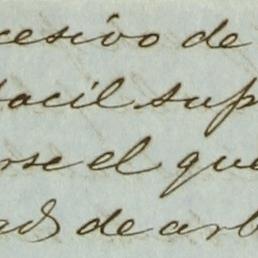 cesivo de
facil sup
rse el que
ad de arb